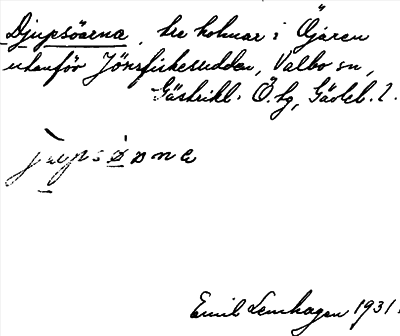 Djupsöarna, tre holmar i Öjaren
utanför Jönsfiskesudden, Valbo sn,
Gästrikl. Ö. tg, Gävleb. l.
Emil Lemhagen 1931.